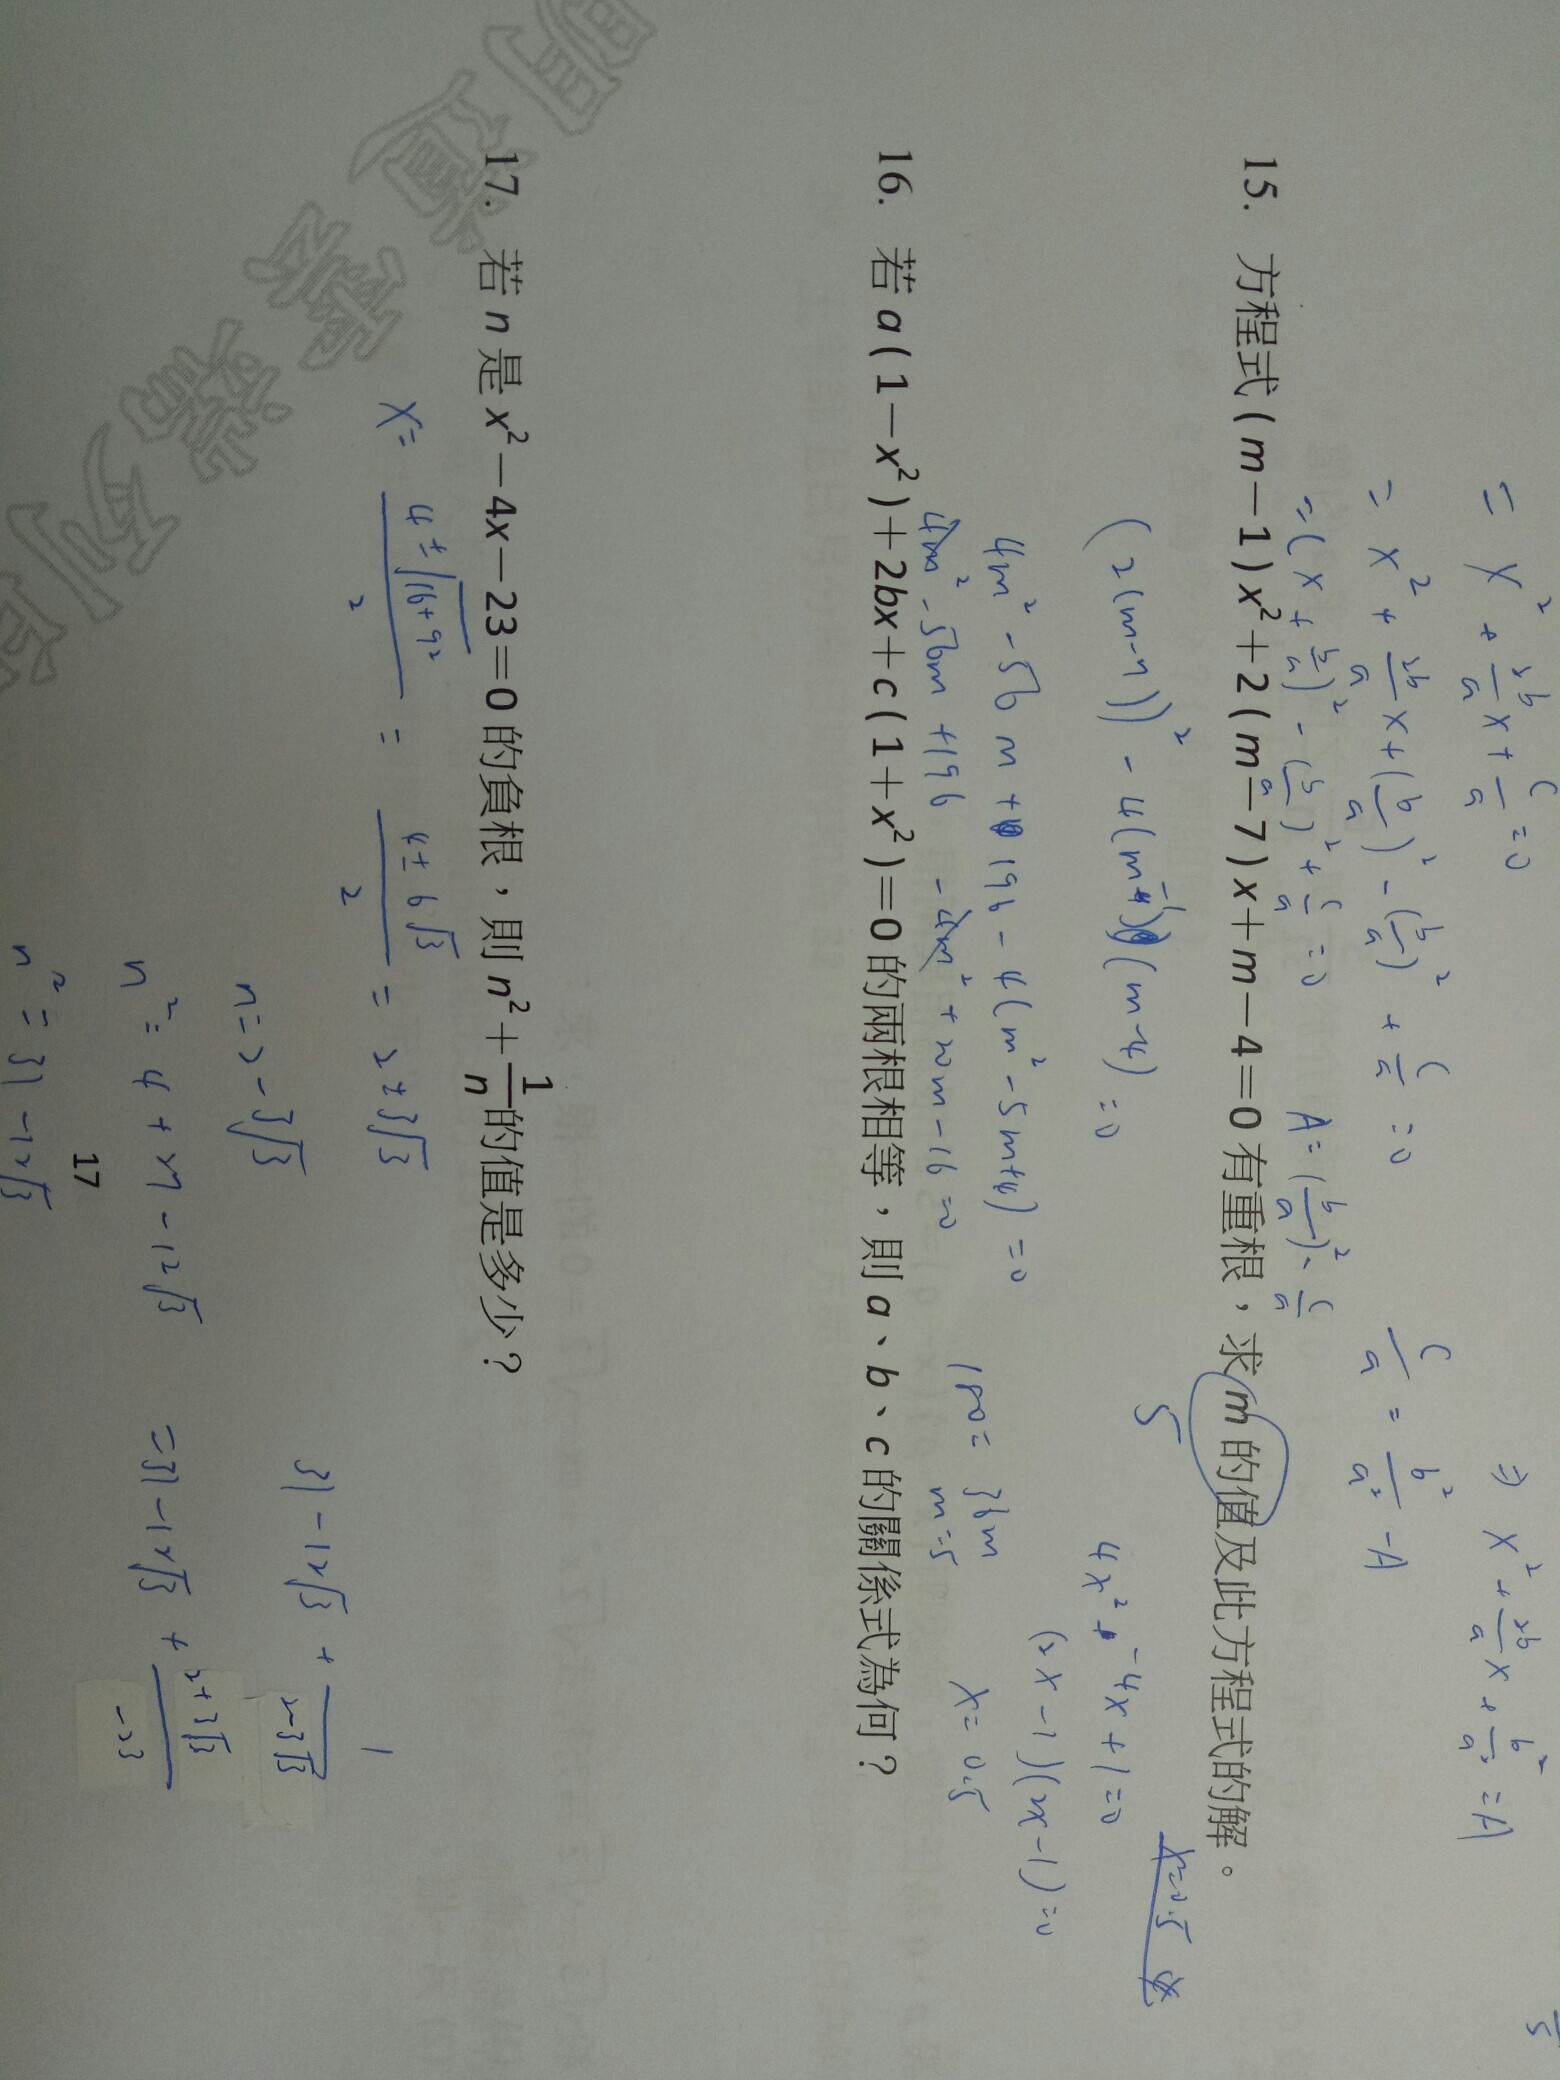 = x² + 2b/a x + c/a = 0
⇒ x² + 2b/a x + b²/a² = A
= x² + 2b/a x + (b/a)² - (b/a)² + c/a = 0
c/a = b²/a² - A
= (x + b/a)² - (b/a)² + c/a = 0
A = (b/a)² - c/a
15. 方程式(m－1)x²＋2(m－7)x＋m－4＝0有重根，求m的值及此方程式的解。
5
x=0.5
(2(m-7))² - 4(m-1)(m-4) = 0
4x² - 4x + 1 = 0
4m² - 56m + 196 - 4(m² - 5m + 4) = 0
(2x-1)(2x-1) = 0
4m² - 56m + 196 - 4m² + 20m - 16 = 0
180 = 36m
m = 5
x = 0.5
16. 若a(1－x²)＋2bx＋c(1＋x²)＝0的兩根相等，則a、b、c的關係式為何？
17. 若n是x²－4x－23＝0的負根，則n²＋1/n的值是多少？
x = 4±√16+92 / 2 = 4±6√3 / 2 = 2±3√3
n = 2 - 3√3
31 - 12√3 + 1/2-3√3
n² = 4 + 27 - 12√3
= 31 - 12√3 + 2+3√3 / -23
n² = 31 - 12√3
17
明道